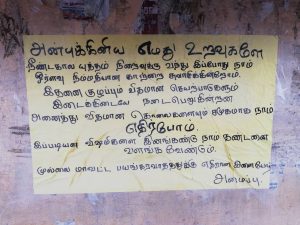 அன்புக்கினிய எமது உறவுகளே
நீண்டகால யுத்தம் நிறைவுக்கு வந்து இப்போது நாம்
ஓரளவு நிம்மதியான காற்றை சுவாசிக்கின்றோம்.
இதனை குழப்பும் விதமான செயற்பாடுகளும்
இடைக்கிடையே நடைபெறுகின்றன
அனைத்து விதமான கொலைகளையும் கூட்டாக நாம்
எதிர்ப்போம்
இப்படியான விஷமிகளை இனங்கண்டு நாம் தண்டனை
வழங்க வேண்டும்.
முல்லை மாவட்ட பயங்கரவாதத்துக்கு எதிரான இளையோர்
அமைப்பு.